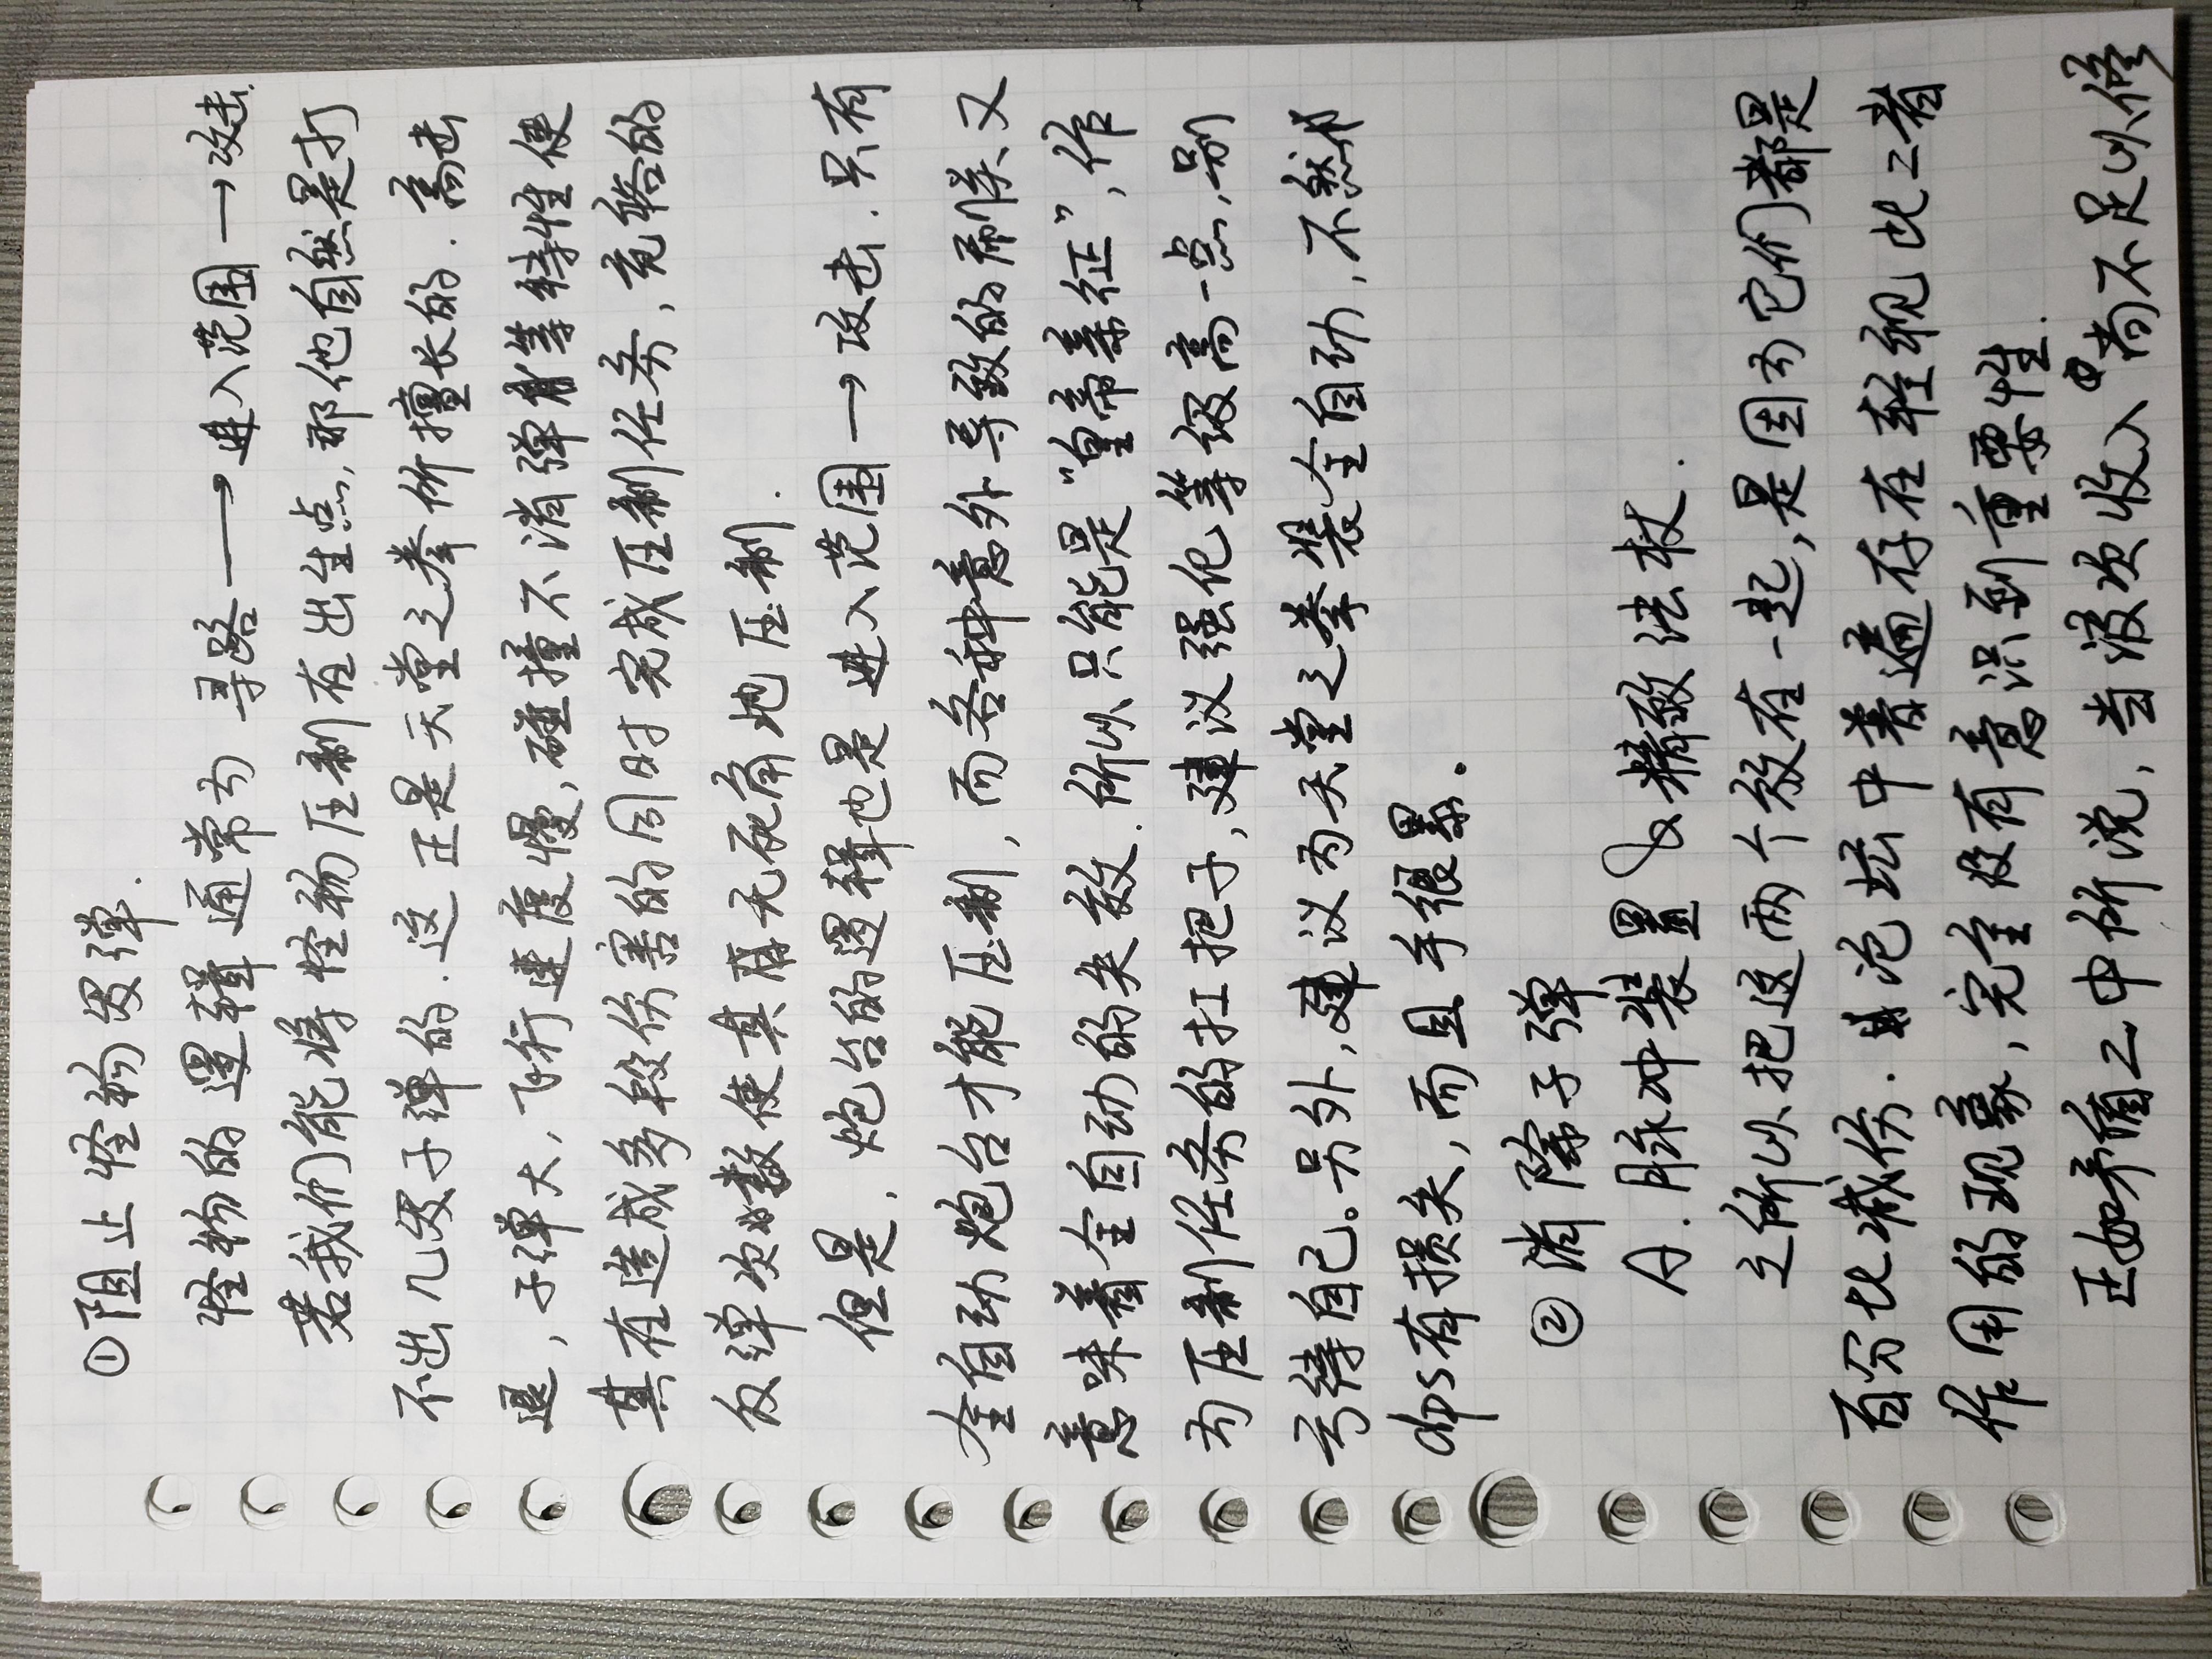 ①阻止怪物发弹.
怪物的逻辑通常为 寻路——→进入范围—→攻击.
若我们能将怪物压制在出生点,那他自然是打
不出几发子弹的.这正是天堂之拳所擅长的.高击
退,子弹大,飞行速度慢,碰撞不消弹等特性使
其在造成多段伤害的同时完成压制任务,充裕的
反弹次数使其无死角地压制.
但是,炮台的逻辑也是进入范围—→攻击.只有
全自动炮台才能压制,而各种意外导致的刷类又
意味着全自动的失效.所以只能是“皇帝亲征”,作
为压制任务的扛把子,建议强化等级高一点,别
亏待自己。另外,建议为天堂之拳装全自动,不然
dps有损失,而且手很累。
②消除子弹
A.脉冲装置&精致法杖.
之所以把这两个放在一起,是因为它们都是
百分比减伤.论坛中普遍存在轻视此二者
作用的现象,完全没有意识到重要性.
正如矛盾二中所说,当波次收入尚不足以修